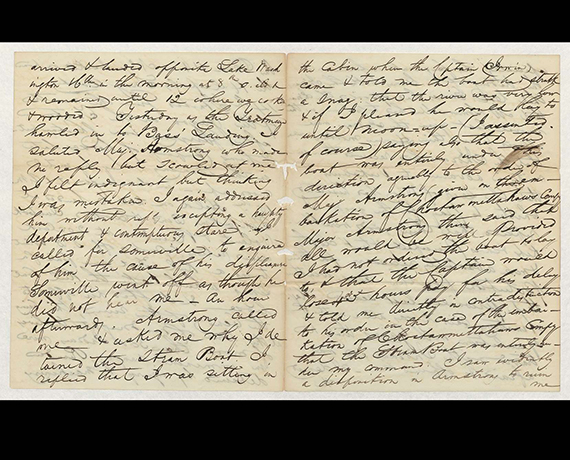 arrived & landed opposite Lake Wash
ington 16th in the morning
& remained until 12 o'clock
& wooded. Yesterday as the Steamer
hauled in to Landing I
saluted Maj. Armstrong who made
no reply but scowled at me
I felt indignant but thinking
I was mistaken I again addressed
him without reply excepting a haughty
department & contemptuous stare & I
called for Somerville to enquire
of him the cause of his displeasure
Somerville went off as though he
did not hear me — An hour
afterwards Armstrong called
me & asked me why I de
tained the Steam Boat I
replied that I was sitting in
the Cabin when the Captain
came & told me the boat had struck
a Snag, that the river was very low
& if I pleased he would lay to
until moon-up. (I assented.
of course) saying also that the
boat was entirely under my
direction agreeably to the order of
Maj Armstrong given on the em-
barkation of
Major Armstrong then said that
all would be me Provided
I had not ordered the boat to lay
to & that the Captain would
lose hours pay for his delay
& told me directly in contradistinction
to his order in the case of the embar-
kation of
that the Steam Boat was entirely un-
der my command I saw evidently
a disposition in Armstrong to ruin
me